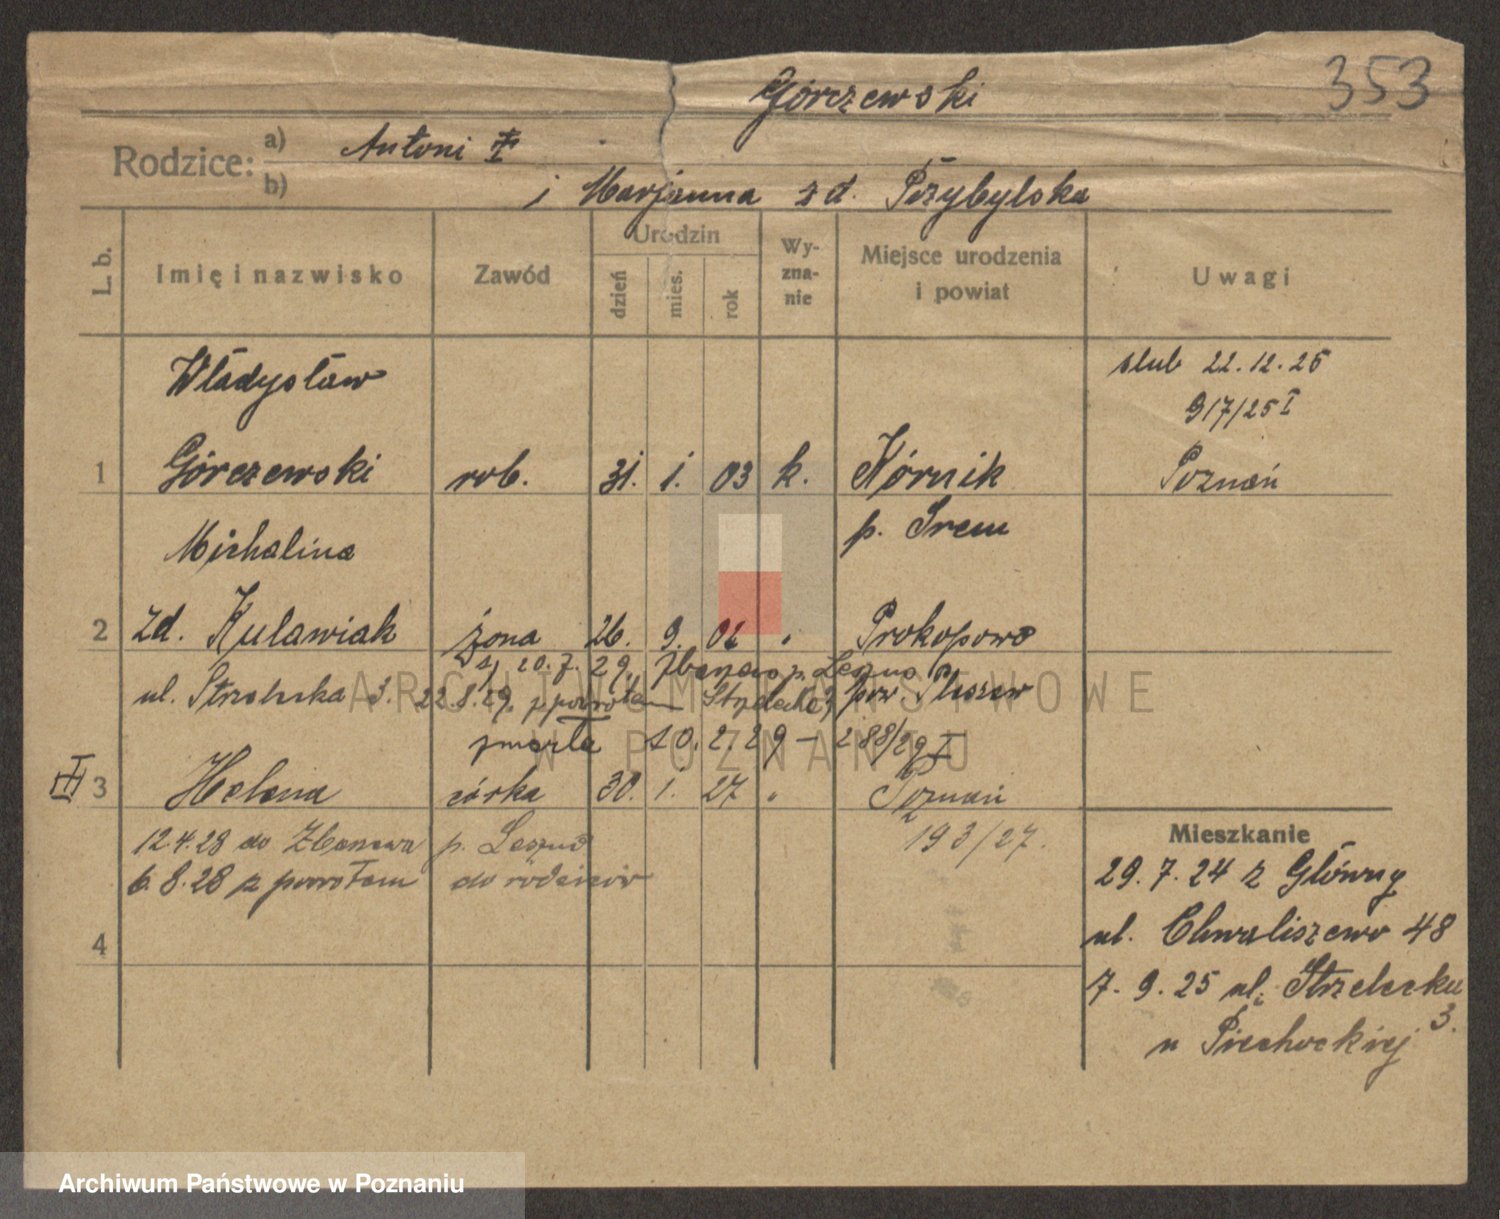 353
Górczewski
Rodzice: a) Antoni
b) i Marjanna z d. Przybylska
L. b. Imię i nazwisko Zawód Urodzin dzień mies. rok Wy-zna-nie Miejsce urodzenia i powiat Uwagi
Władysław ślub 22.12.25
917/25 I
1 Górczewski rob. 31. 1. 03 k. Kórnik Poznań
Michalina p. Śrem
2 zd. Kulawiak żona 26. 9. 02 " Prokopowo
20.7.29, Zbarzewo p. Leszno
ul. Strzelecka 3. 22.8.29, z powrotem Strzelecka 3, pow Pleszew
zmarła 10.2.29 - 288/29 I
III 3 Helena córka 30. 1. 27 " Poznań
12.4.28 do p. Leszno 193/27.
6.8.28 z powrotem do rodziców
4
Mieszkanie
29.7.24 z Główny
ul. Chwaliszewo 48
7.9.25 ul. Strzelecka 3.
u Piechockiej
ARCHIWUM PAŃSTWOWE
W POZNANIU
Archiwum Państwowe w Poznaniu